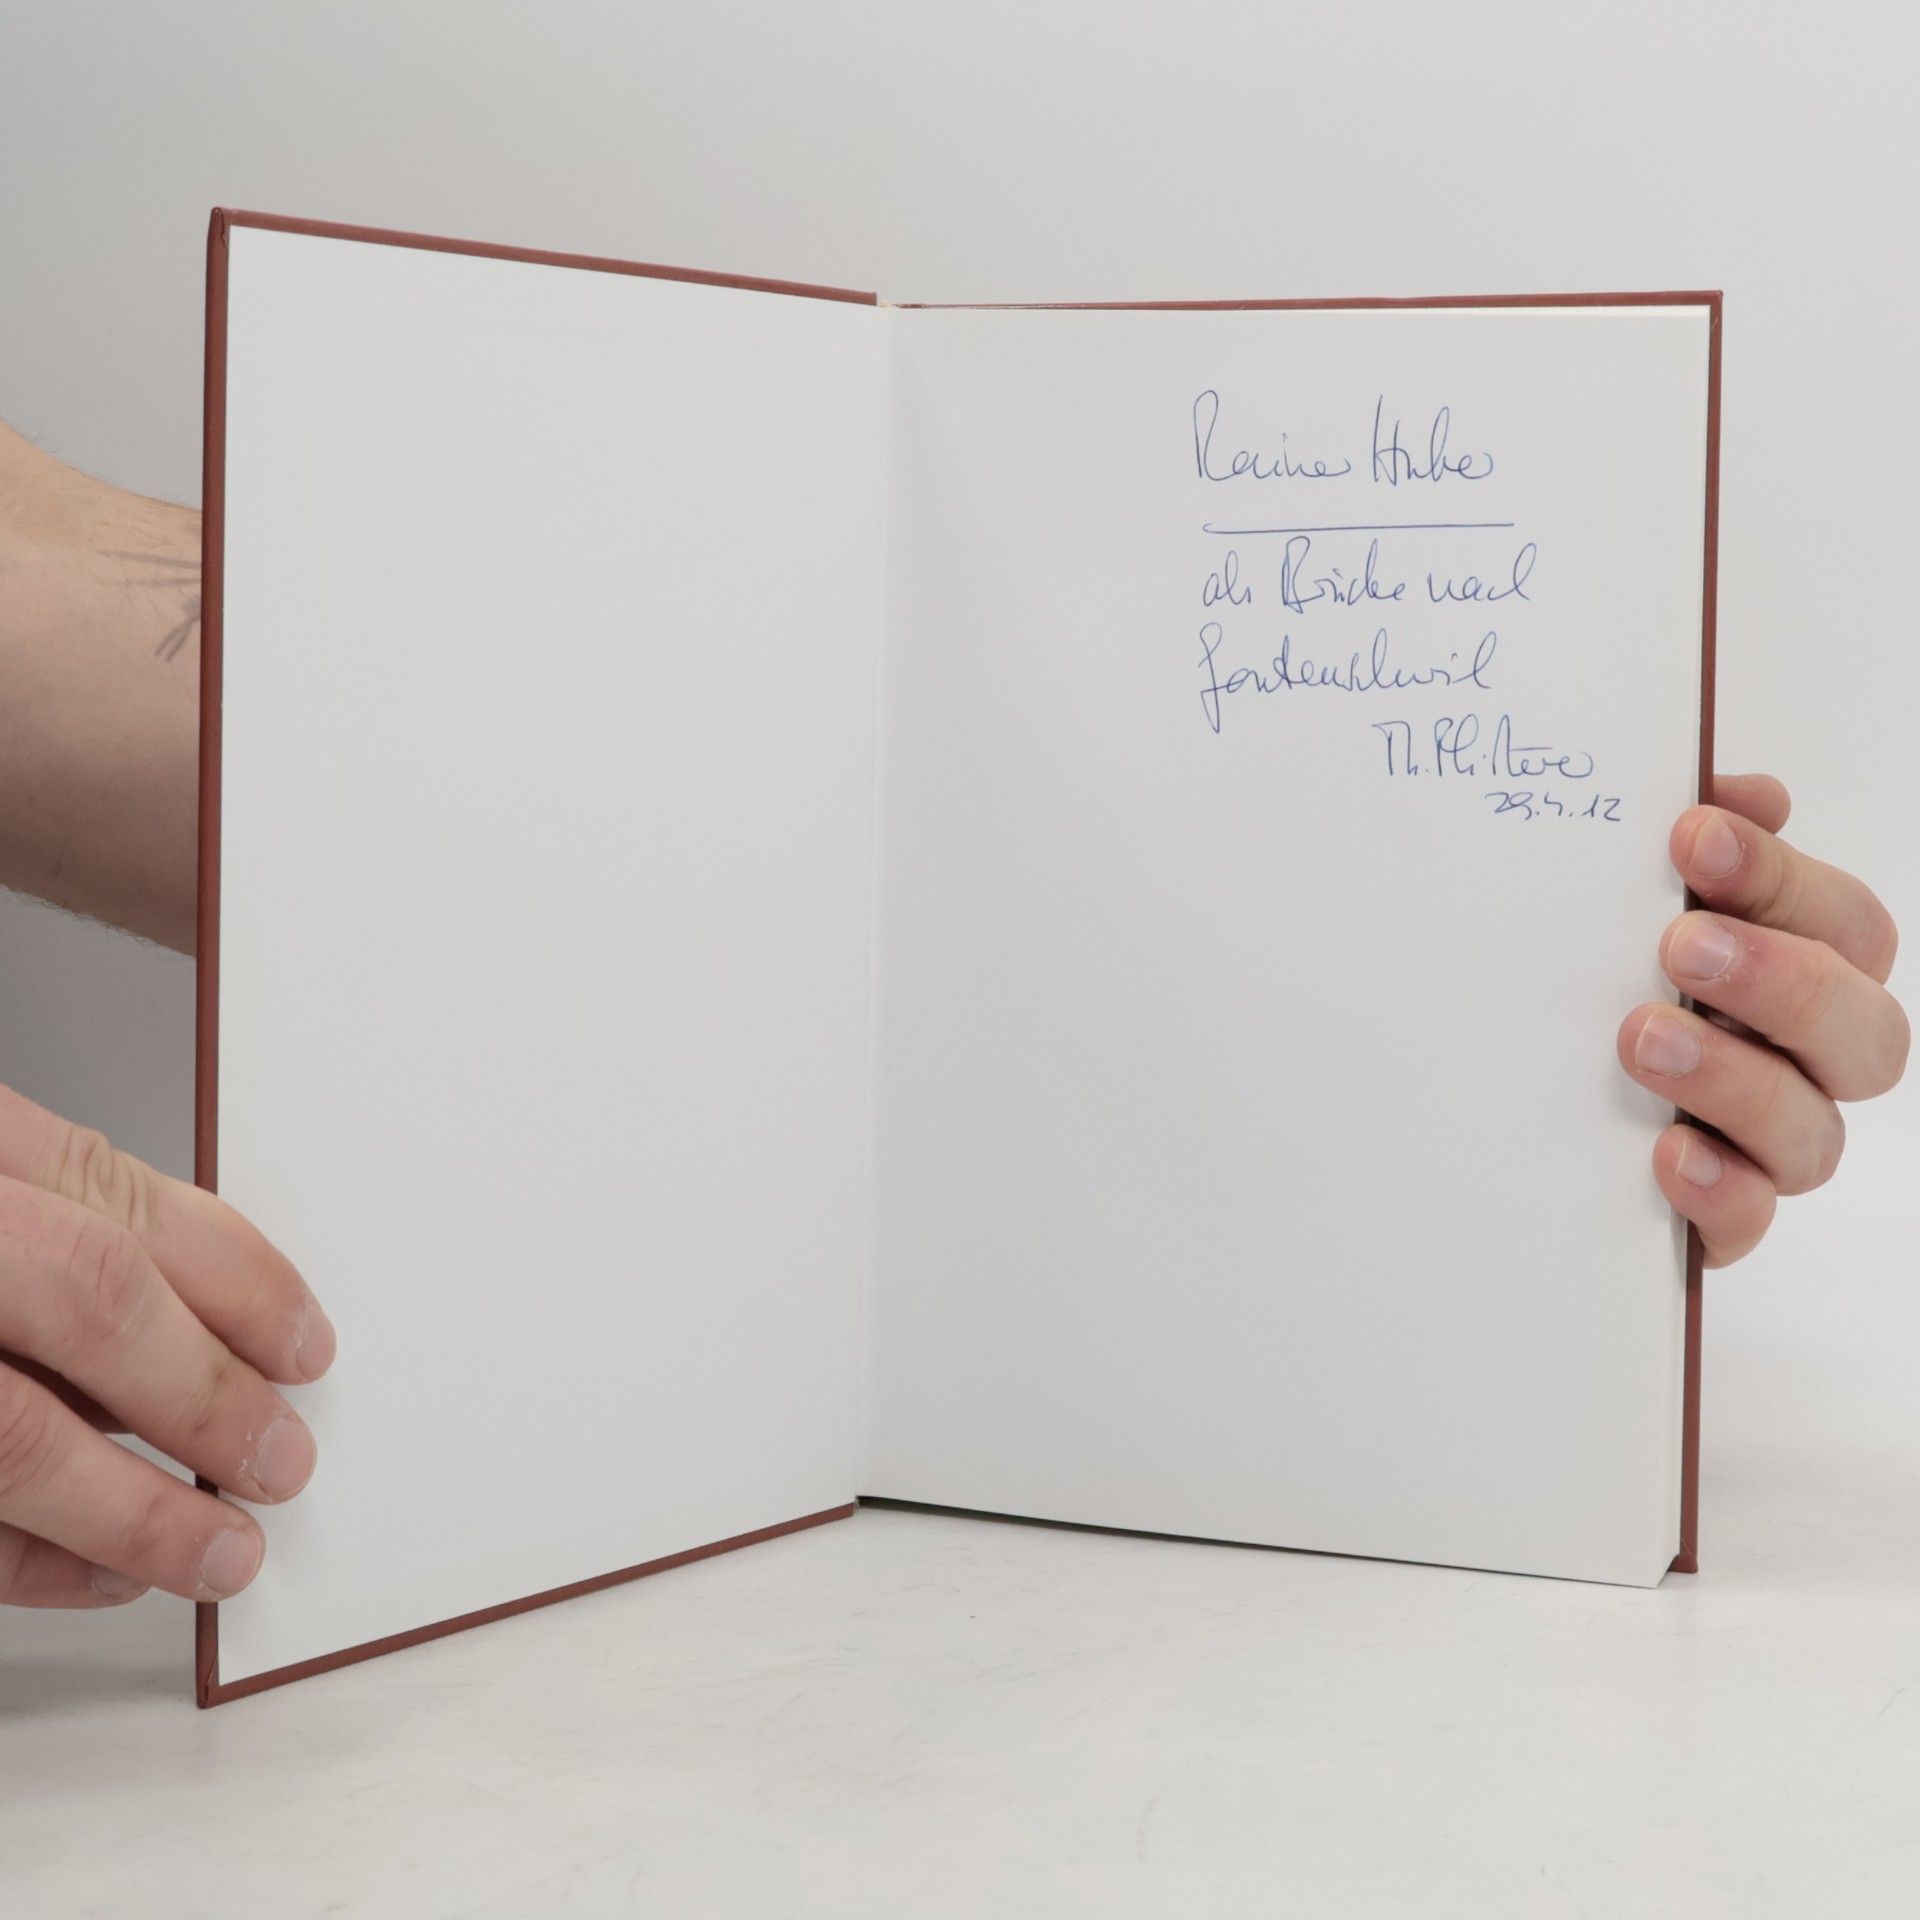 Rainer Huber
als Brücke nach
Gontenschwil
Th. Pfisterer
29.4.12